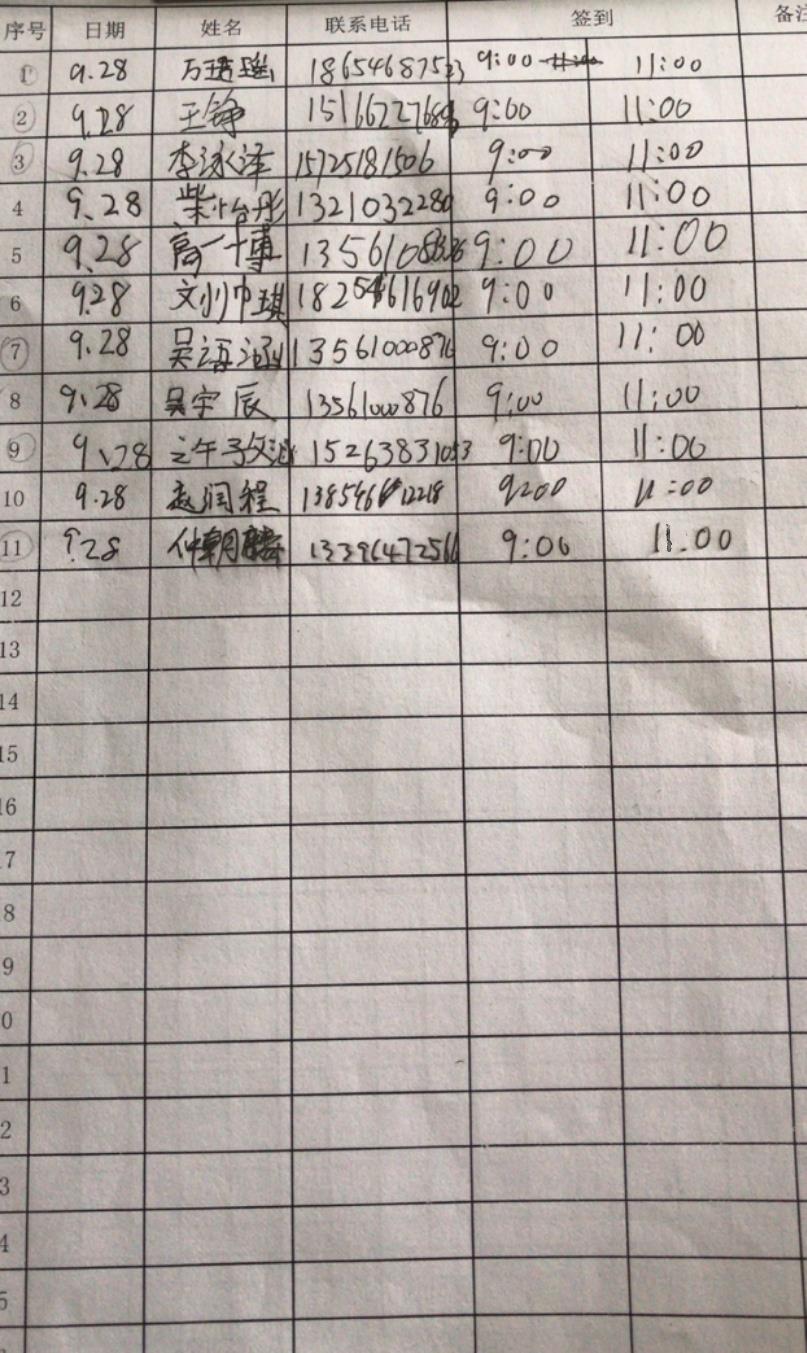 序号 日期 姓名 联系电话 签到 备注
1 9.28 万 9:00 11:00
2 9.28 王铮 9:00 11:00
3 9.28 李泳泽 15725181506 9:00 11:00
4 9.28 柴怡彤 13210322280 9:00 11:00
5 9.28 高一博 9:00 11:00
6 9.28 9:00 11:00
7 9.28 吴语涵 13561000876 9:00 11:00
8 9.28 吴宇辰 13561000876 9:00 11:00
9 9.28 9:00 11:00
10 9.28 赵润程 9:00 11:00
11 9.28 仲朝 9:00 11:00
12
13
14
15
16
7
8
9
0
1
2
3
4
5